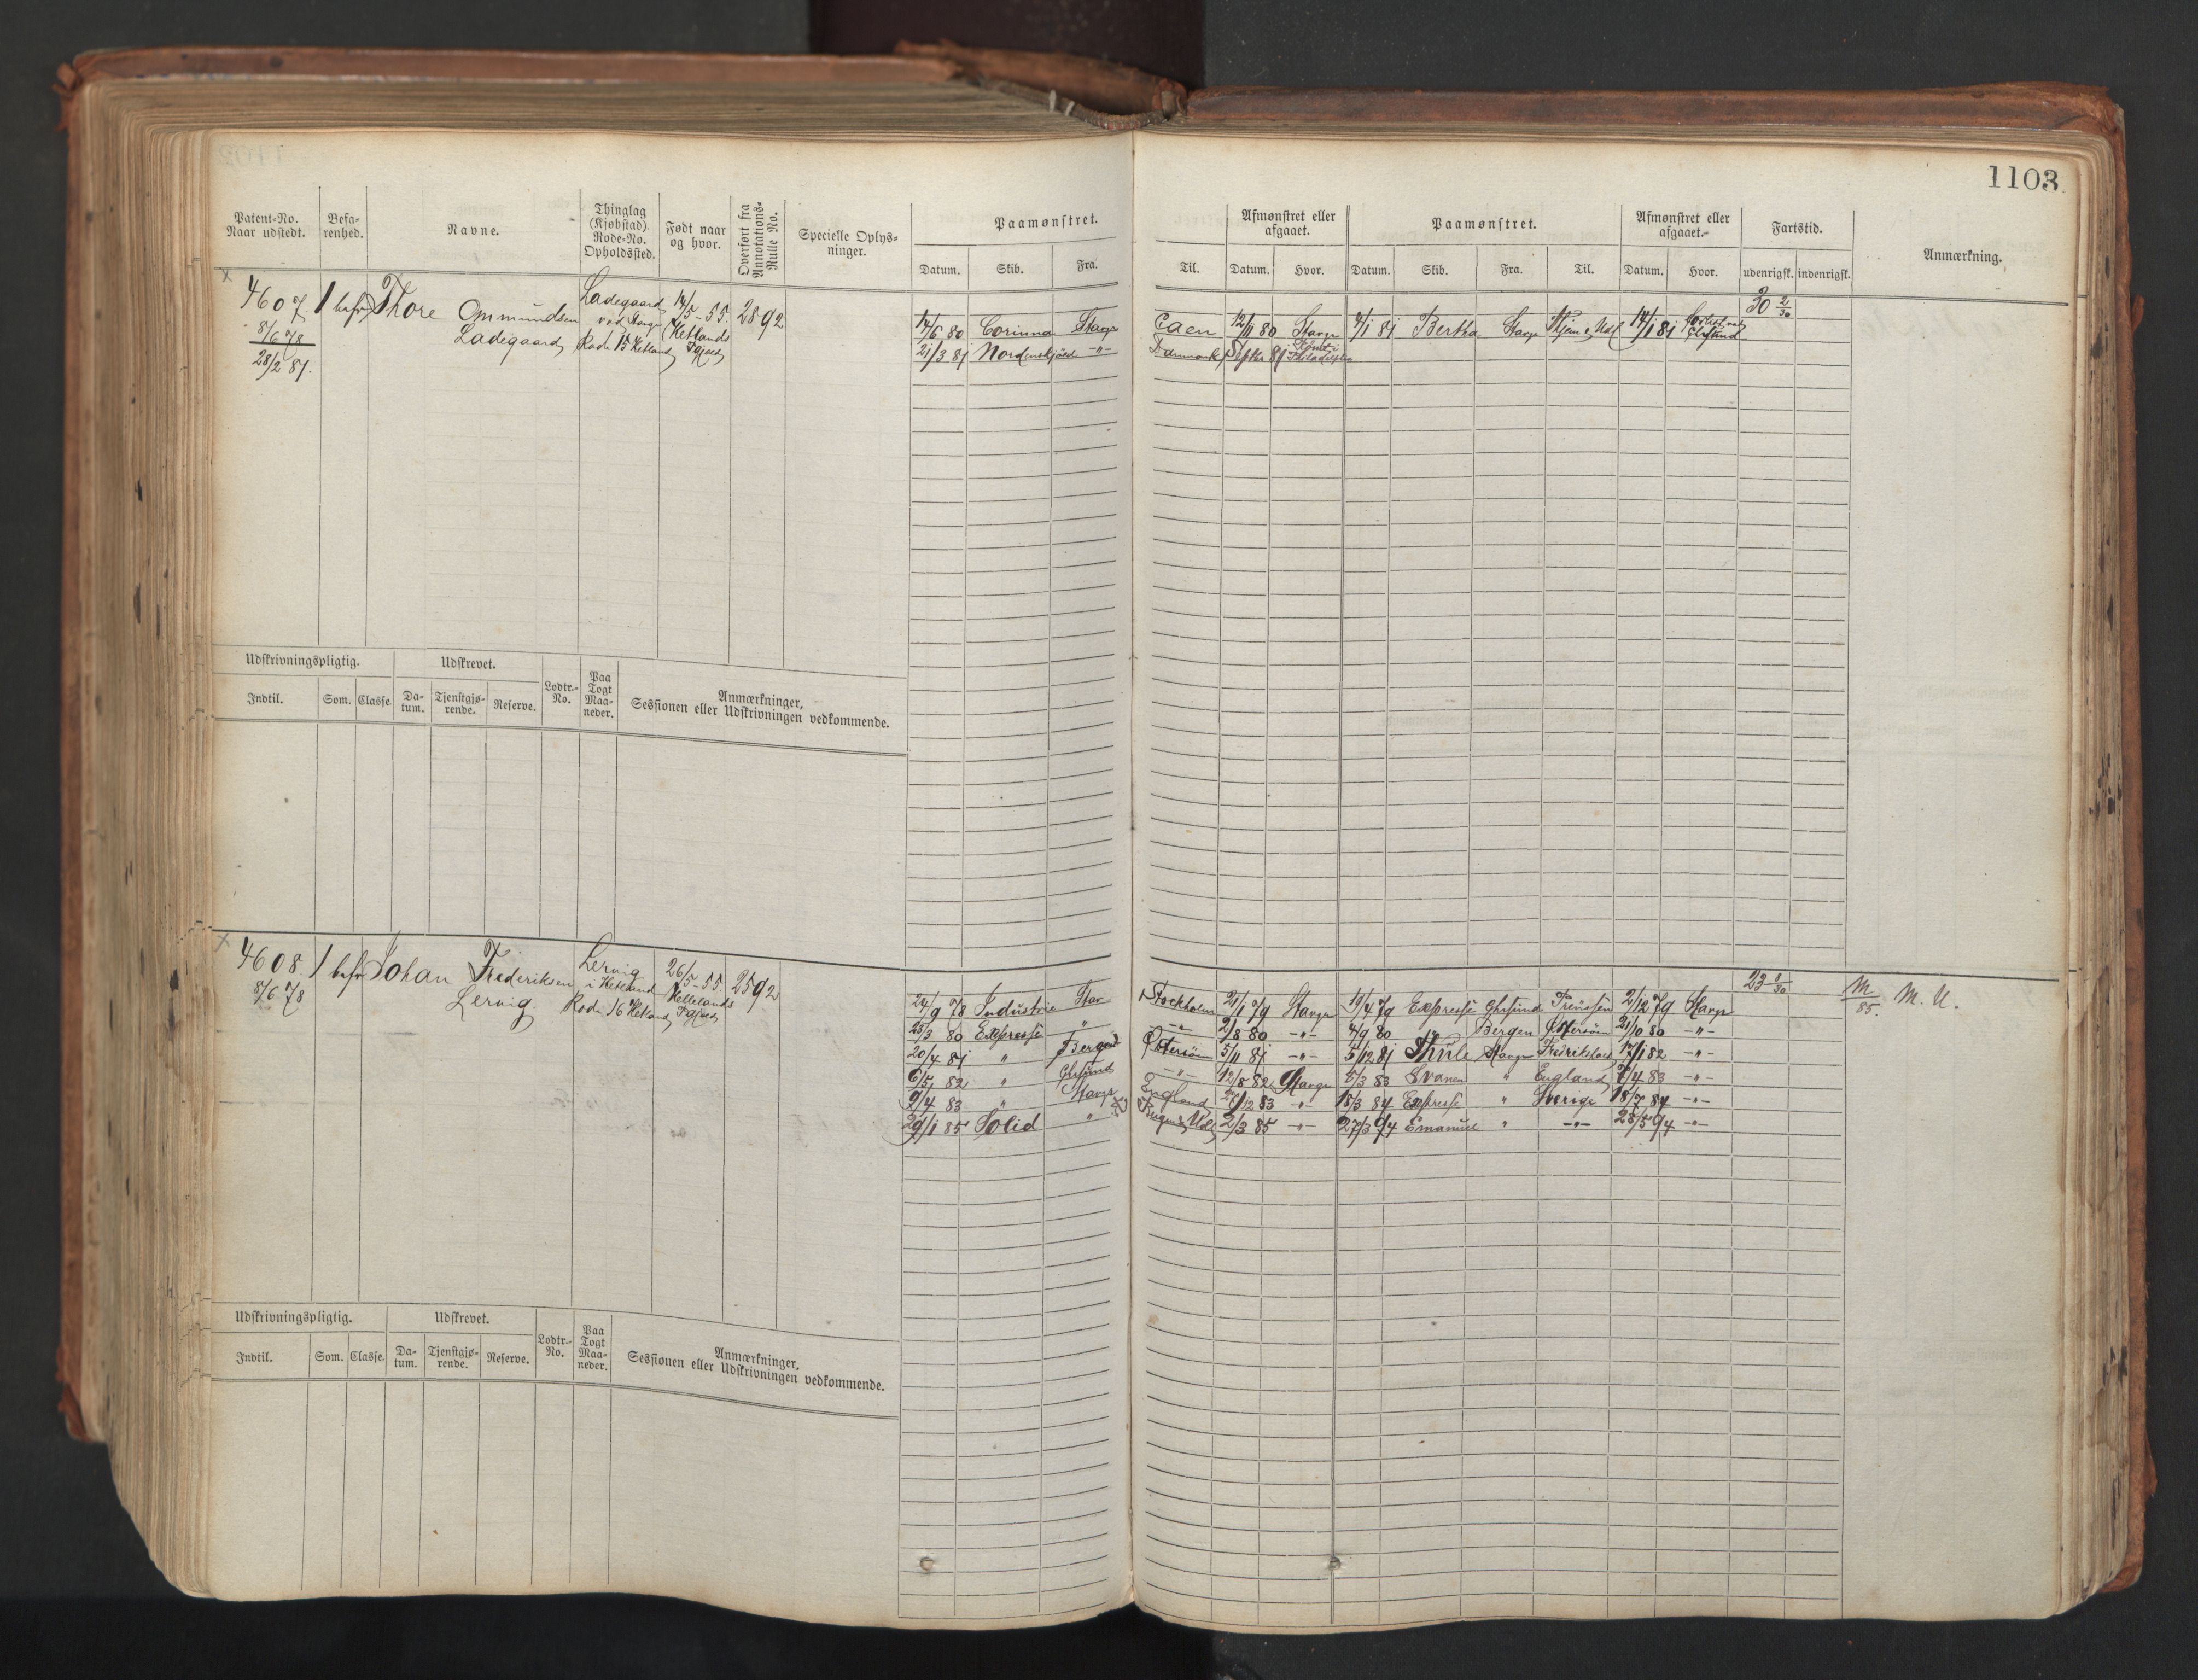 1103.
Patent-No.
Naar udstedt.
Befa-
renhed.
Navne.
Thinglag
(Kjøbstad).
Rode-No.
Opholdssted.
Født naar
og hvor.
Overført fra
Annotations-
Rulle No.
Specielle Oplys-
ninger.
Paamønstret.
Datum. Skib. Fra.
Til.
Afmønstret eller
afgaaet.
Datum. Hvor.
Paamønstret.
Datum. Skib. Fra. Til.
Afmønstret eller
afgaaet.
Datum. Hvor.
Fartstid.
udenrigsk. indenrigsk.
Anmærkning.
4607 1 bef. Thore Ommundsen
Ladegaard
8/6 78
28/2 81.
Ladegaard
ved Stavgr
Rode 15 Hetland
14/5 - 55.
Hetlands
Pgjeld
2892
14/6 80 Corinna Stavgr Caen 12/11 80 Stavgr 4/1 81 Bertha Stavgr Hjem & Udl 14/1 81
30 2/30
21/3 81 Nordenskjöld -"- Danmark Septbr 81 Philadelphia
Udskrivningspligtig.
Indtil. Som. Classe.
Udskrevet.
Da-
tum.
Tjenstgjø-
rende.
Reserve.
Lodtr.-
No.
Paa
Togt
Maa-
neder.
Anmærkninger,
Sessionen eller Udskrivningen vedkommende.
4608 1 bef. Johan Frederiksen
Lervig.
8/6 78
Lervig
i Hetland
Rode 16 Hetland
26/5 - 55.
Hetlands
Pgjeld
2592
23 8/30
M/85. M. U.
24/9 78 Industrie Stav Stockholm 21/1 79 Stavgr 19/4 79 Expresse Ghrsund Preussen 2/12 79 Stavgr
23/3 80 Expresse " -"- 2/8 80 -"- 4/9 80 " Bergen Østersöen 21/10 80 -"-
20/4 81 " Bergen Østersöen 5/11 81 -"- 5/12 81 Thule Stavgr Fredrikstad 17/1 82 -"-
6/5 82 " Ghrsund -"- 12/8 82 Stavgr 5/3 83 Svanen " England 7/4 83 -"-
9/4 83 " Stavgr England 27/12 83 -"- 18/3 84 Expresse " Sverige 18/7 84 -"-
29/1 85 Solid " 2/3 85 -"- 27/3 94 Emanuel " -"- 25/5 94 -"-
Udskrivningspligtig.
Indtil. Som. Classe.
Udskrevet.
Da-
tum.
Tjenstgjø-
rende.
Reserve.
Lodtr.-
No.
Paa
Togt
Maa-
neder.
Anmærkninger,
Sessionen eller Udskrivningen vedkommende.